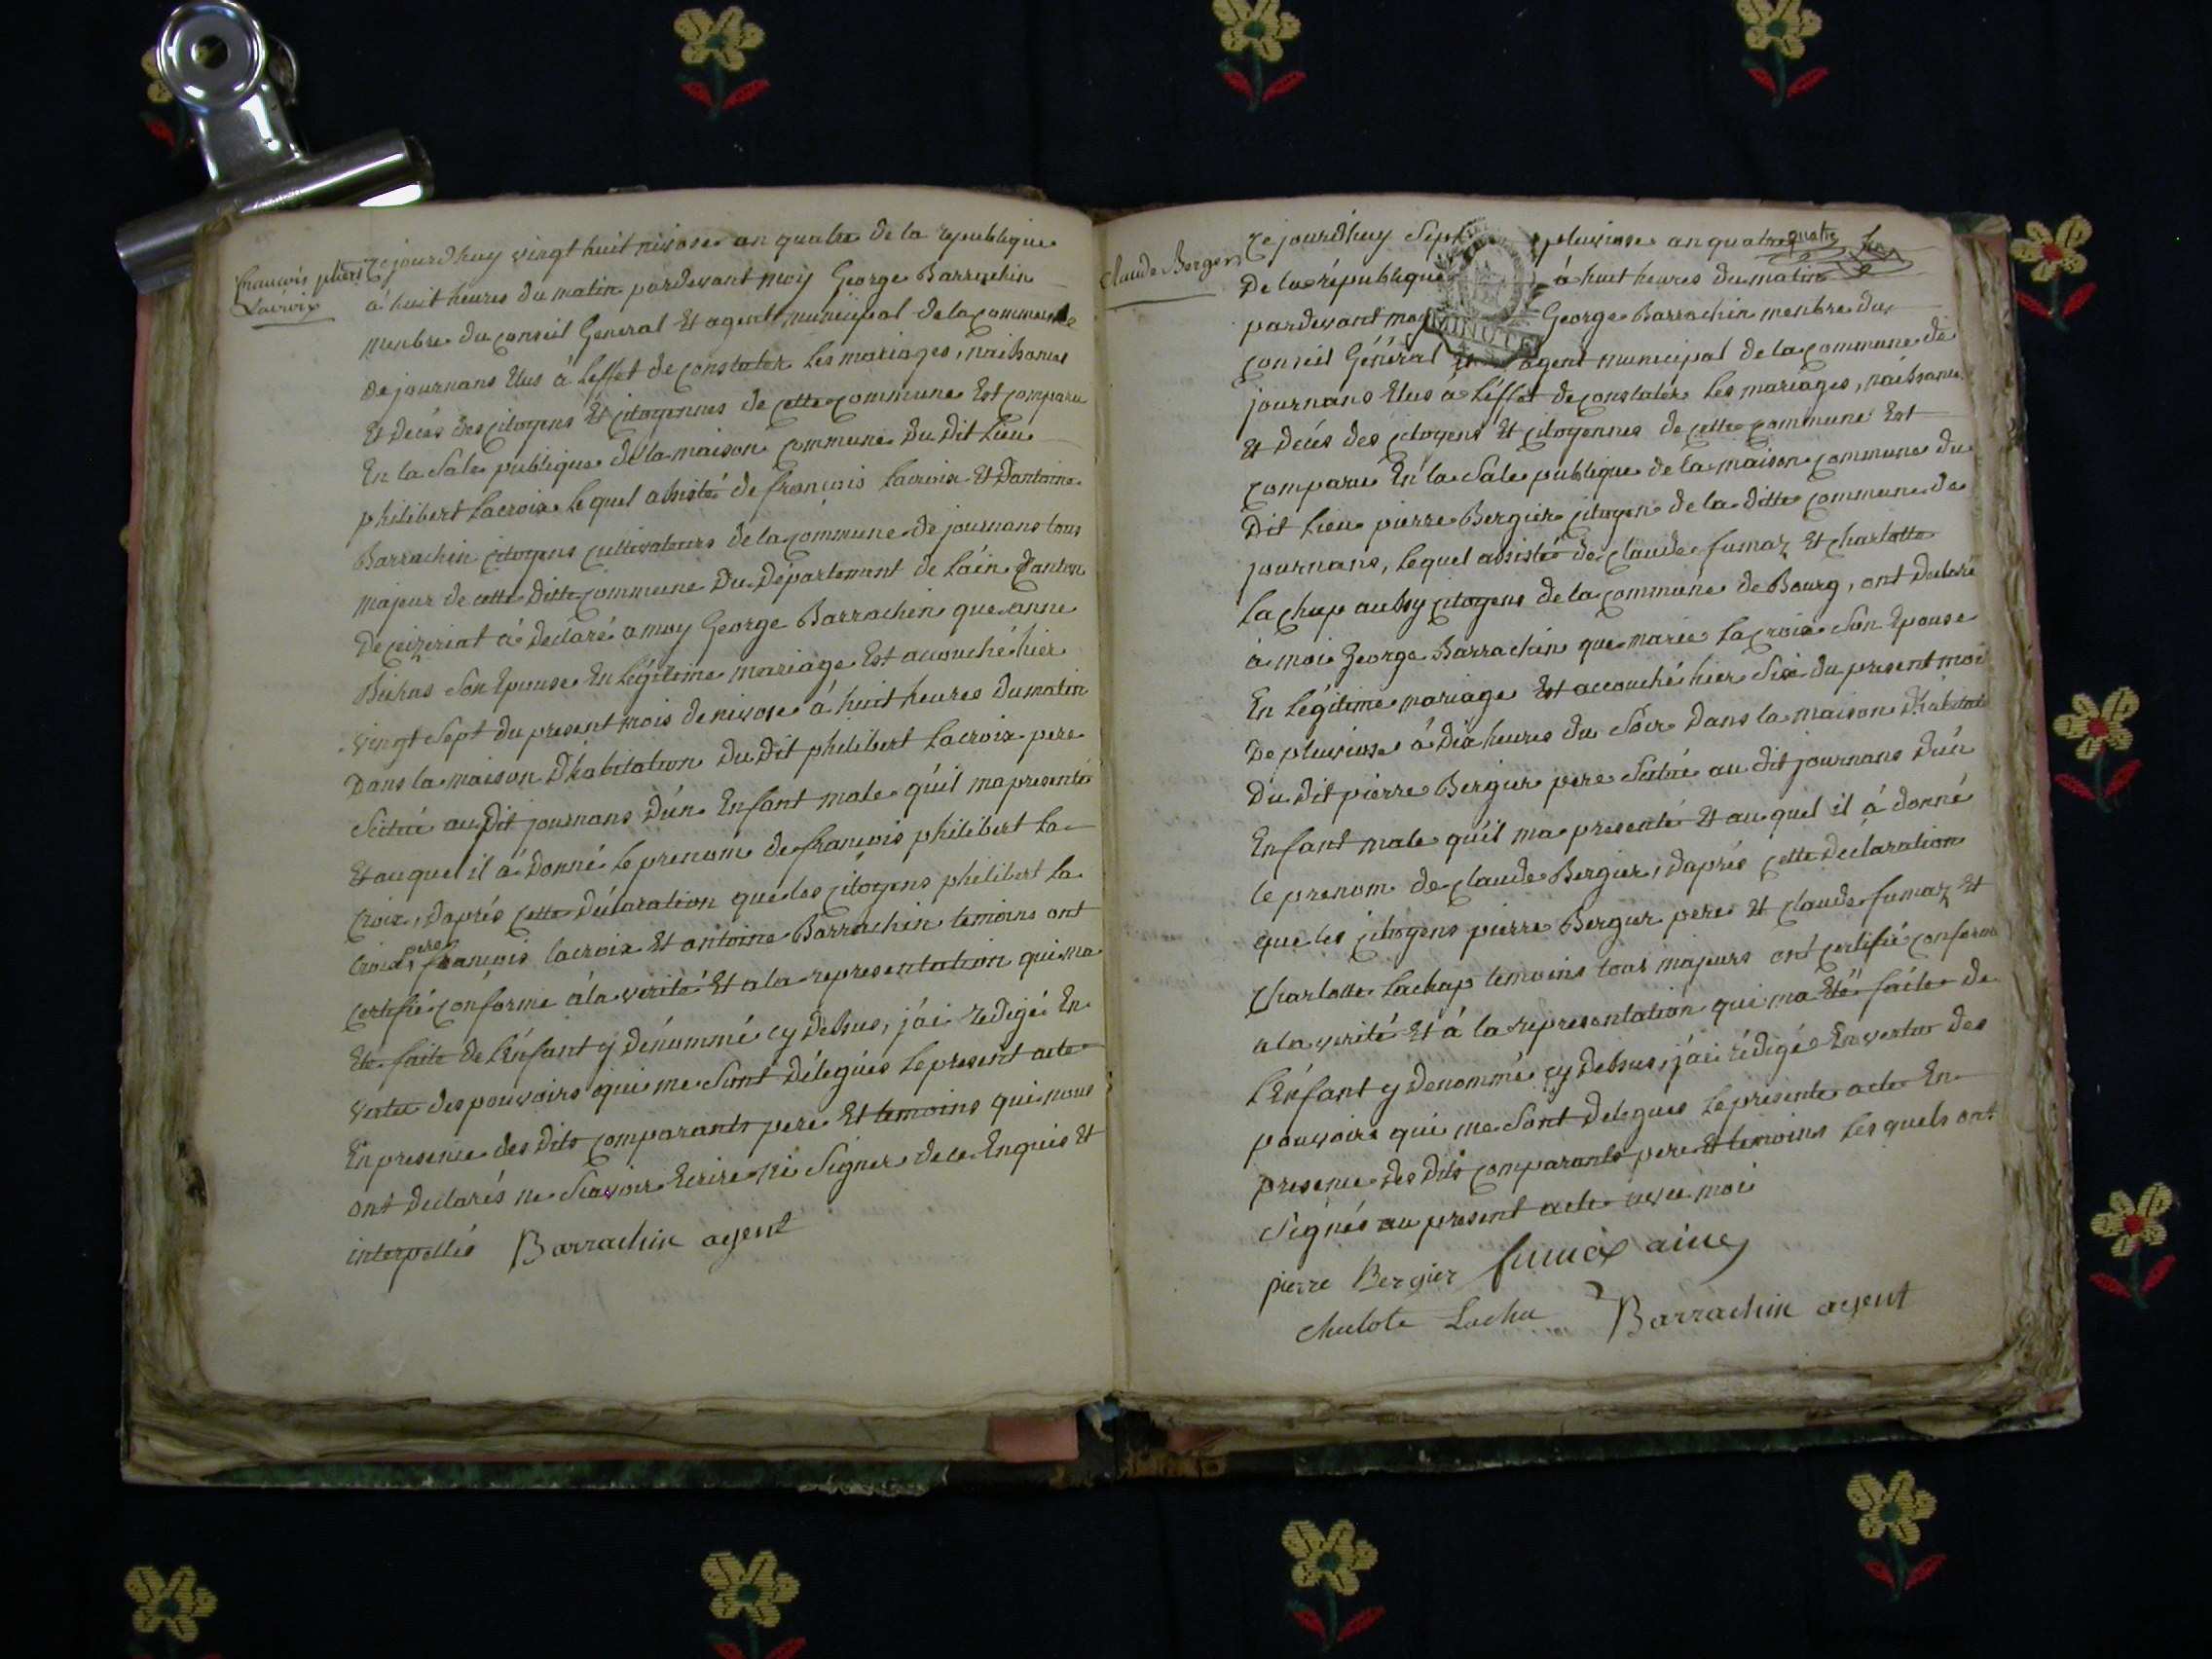 françois philibert
Lacroix
Cejourdhuy vingt huit nivose an quatre de la republique
à huit heures du matin pardevant moy George Barrachin
menbre du conseil General Et agent municipal de la commune
de journans Elus à Leffet de constater Les mariages, naissances
Et décés des citoyens Et citoyennes de cette commune Est comparu
En la Sale publique de la maison commune du dit Lieu
philibert Lacroix Lequel assisté de françois Lacroix Et Dantoine
Barrachin citoyens cultivateurs de la commune de journans tous
majeur de cette ditte commune Du Département de Láin Canton
De ceizeriat à declaré a moy George Barrachin que anne
son Epouse En Légitime mariage Est acouché hier
vingt Sept du present mois de nivose à huit heures du matin
Dans la maison D'habitation Du Dit philibert Lacroix pere
Scitué au Dit journans Dún Enfant male qúil ma presenté
Et auquel il á Donné Le prenom de françois philibert La
Croix, Daprés cette Déclaration que les citoyens philibert La
Croix pere, françois lacroix Et antoine Barrachin temoins ont
certifié conforme á la verité Et a la representation qui ma
Eté faite de L'Énfant y dénommé cy Dessus, jái redigé En
vertu des pouvoirs qui me Sont Délegués Le present acte
En presence des Dits comparants pere Et temoins qui nous
ont declarés ne Scavoir Ecrire ni Signer de ce Enquis Et
interpellés Barrachin agent
Claude Bergier
Cejourdhuy Sept pluviose an quatre quatre
De la république à huit heures du matin
pardevant moy George Barrachin menbre du
MINUTE
conseil Général Et agent municipal de la commune de
journans Elus á Léffet de constater Les mariages, naissances
Et décés des citoyens Et citoyennes de cette commune Est
comparu En la Sale publique de la maison commune du
Dit Lieu pierre Bergier citoyen de la ditte commune de
journans, Lequel assisté de claude fumaz Et charlotte
Lachap aussy citoyens de la commune de Bourg, ont declaré
à moi George Barrachin que marie Lacroix Son Epouse
En Légitime mariage Est accouché hier Six du present mois
De pluviose á Dix heures du Soir Dans la maison D'habitation
Du Dit pierre Bergier pere Scitué au dit journans Dún
Enfant male qúil ma presenté Et auquel il á donné
le prenom de claude Bergier, Daprés cette Declaration
que les citoyens pierre Bergier pere Et claude fumaz Et
Charlotte Lachap temoins tous majeurs ont certifié conforme
a la verité Et á la representation qui ma Eté faite de
L'Énfant y denommé cy Dessus, jái rédigé En vertu des
pouvoirs qui me Sont Delegués Le presente acte En
presence des Dits comparants pere Et temoins Lesquels ont
Signés au present acte avec moi
pierre Bergier fumax ainé
Chalote Lacha Barrachin agent